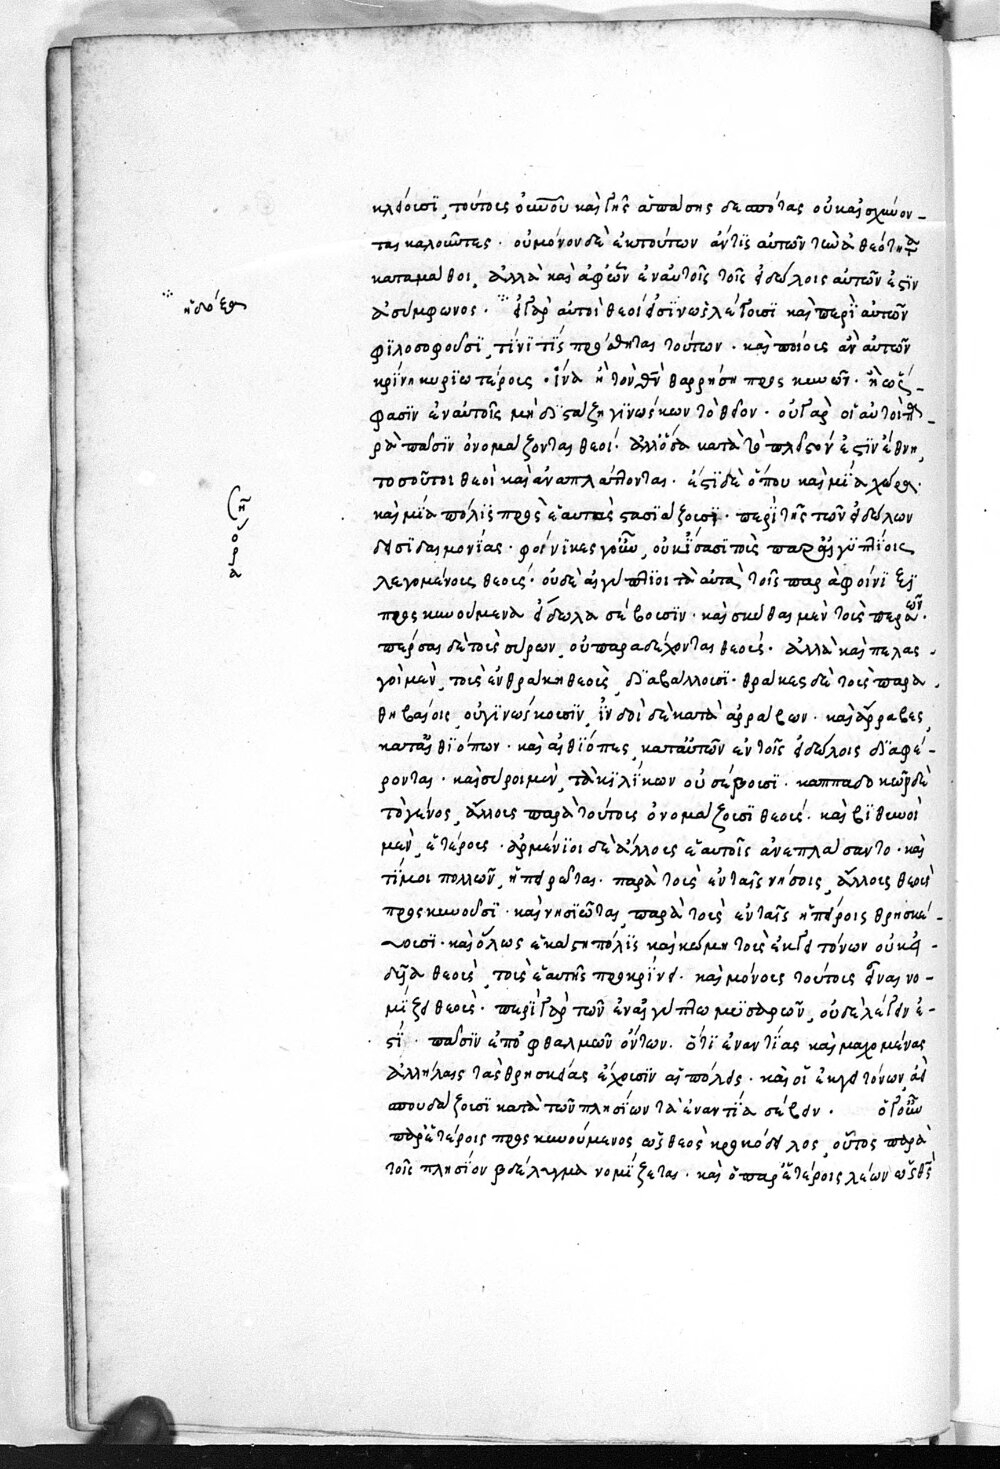 κλείουσι, τούτους οὐρανοῦ καὶ γῆς ἁπάσης δεσπότας οὐκ αἰσχύνον-
ται καλοῦντες. οὐ μόνον δὲ ἐκ τούτων ἄν τις αὐτῶν τὴν ἀθεότητα
καταμάθοι, ἀλλὰ καὶ ἀφ' ὧν ἐν αὐτοῖς τοῖς εἰδώλοις αὐτῶν ἐστὶν
ἀσύμφωνος. εἰ γὰρ αὐτοὶ θεοί εἰσιν ὡς λέγουσι καὶ περὶ αὐτῶν
φιλοσοφοῦσι, τίνι τις πρόσθηται τούτων. καὶ ποίους ἂν αὐτῶν
κρίνῃ κυριωτέρους. ἵνα ἢ τὸν θν θαρρήσῃ προσκυνῶν. ἢ ὥς
φασιν ἐν αὐτοῖς μὴ διστάζῃ γινώσκων τὸ θεῖον. οὐ γὰρ οἱ αὐτοὶ πα-
ρὰ πᾶσιν ὀνομάζονται θεοί. ἀλλ' ὅσα κατὰ τὸ πλεῖστόν ἐστιν ἔθνη,
τοσοῦτοι θεοὶ καὶ ἀναπλάττονται. ἔστι δὲ ὅπου καὶ μία χώρα.
καὶ μία πόλις πρὸς ἑαυτὰς στασιάζουσι. περὶ τῆς τῶν εἰδώλων
δεισιδαιμονίας. φοίνικες γοῦν, οὐκ ἴσασι τοὺς παρ' αἰγυπτίοις
λεγομένους θεούς. οὐδὲ αἰγύπτιοι τὰ αὐτὰ τοῖς παρὰ φοίνιξι
προσκυνούμενα εἴδωλα σέβουσιν. καὶ σκύθαι μὲν τοὺς περσῶν.
πέρσαι δὲ τοὺς σύρων, οὐ παραδέχονται θεούς. ἀλλὰ καὶ πελασ-
γοὶ μὲν, τοὺς ἐν θράκῃ θεοὺς, διαβάλλουσι. θρᾷκες δὲ τοὺς παρὰ
θηβαίοις, οὐ γινώσκουσιν, ἰνδοὶ δὲ κατὰ ἀρράβων. καὶ ἄρραβες,
κατὰ αἰθιόπων. καὶ αἰθίοπες, κατ' αὐτῶν ἐν τοῖς εἰδώλοις διαφέ-
ρονται. καὶ σύροι μὲν, τὰ κιλίκων οὐ σέβουσι. καππαδοκῶν δὲ
τὸ γένος, ἄλλους παρὰ τούτους ὀνομάζουσι θεούς. καὶ βιθυνοὶ
μὲν, ἑτέρους. ἀρμένιοι δὲ ἄλλους ἑαυτοῖς ἀνεπλάσαντο. καὶ
τί μοι πολλῶν, ἠπειρῶται. παρὰ τοὺς ἐν ταῖς νήσοις, ἄλλους θεοὺς
προσκυνοῦσι. καὶ νησιῶται, παρὰ τοὺς ἐν ταῖς ἠπείροις θρησκεύ-
ουσι. καὶ ὅλως ἑκάστη πόλις καὶ κώμη τοὺς ἐκ γειτόνων οὐκ εἰ-
δυῖα θεοὺς, τοὺς ἑαυτῆς προκρίνει. καὶ μόνους τούτους εἶναι νο-
μίζει θεούς. περὶ γὰρ τῶν ἐν αἰγύπτῳ μυσαρῶν, οὐδὲ λέγειν ἐ-
στί. πᾶσιν ἐπ' ὀφθαλμῶν ὄντων. ὅτι ἐναντίας καὶ μαχομένας
ἀλλήλαις τὰς θρησκείας ἔχουσιν αἱ πόλεις. καὶ οἱ ἐκ γειτόνων ἀεὶ
σπουδάζουσι κατὰ τῶν πλησίων τὰ ἐναντία σέβειν. ὁ γοῦν
παρ' ἑτέροις προσκυνούμενος ὡς θεὸς κροκόδειλος, οὗτος παρὰ
τοῖς πλησίον βδέλυγμα νομίζεται. καὶ ὁ παρ' ἑτέροις λέων ὡς θς